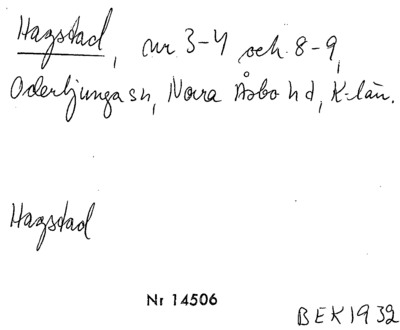 Hagstad, nr 3-4 och 8-9,
Oderljunga sn, Norra Åsbo hd, K-län.
Hagstad
Nr 14506
BEK 1932